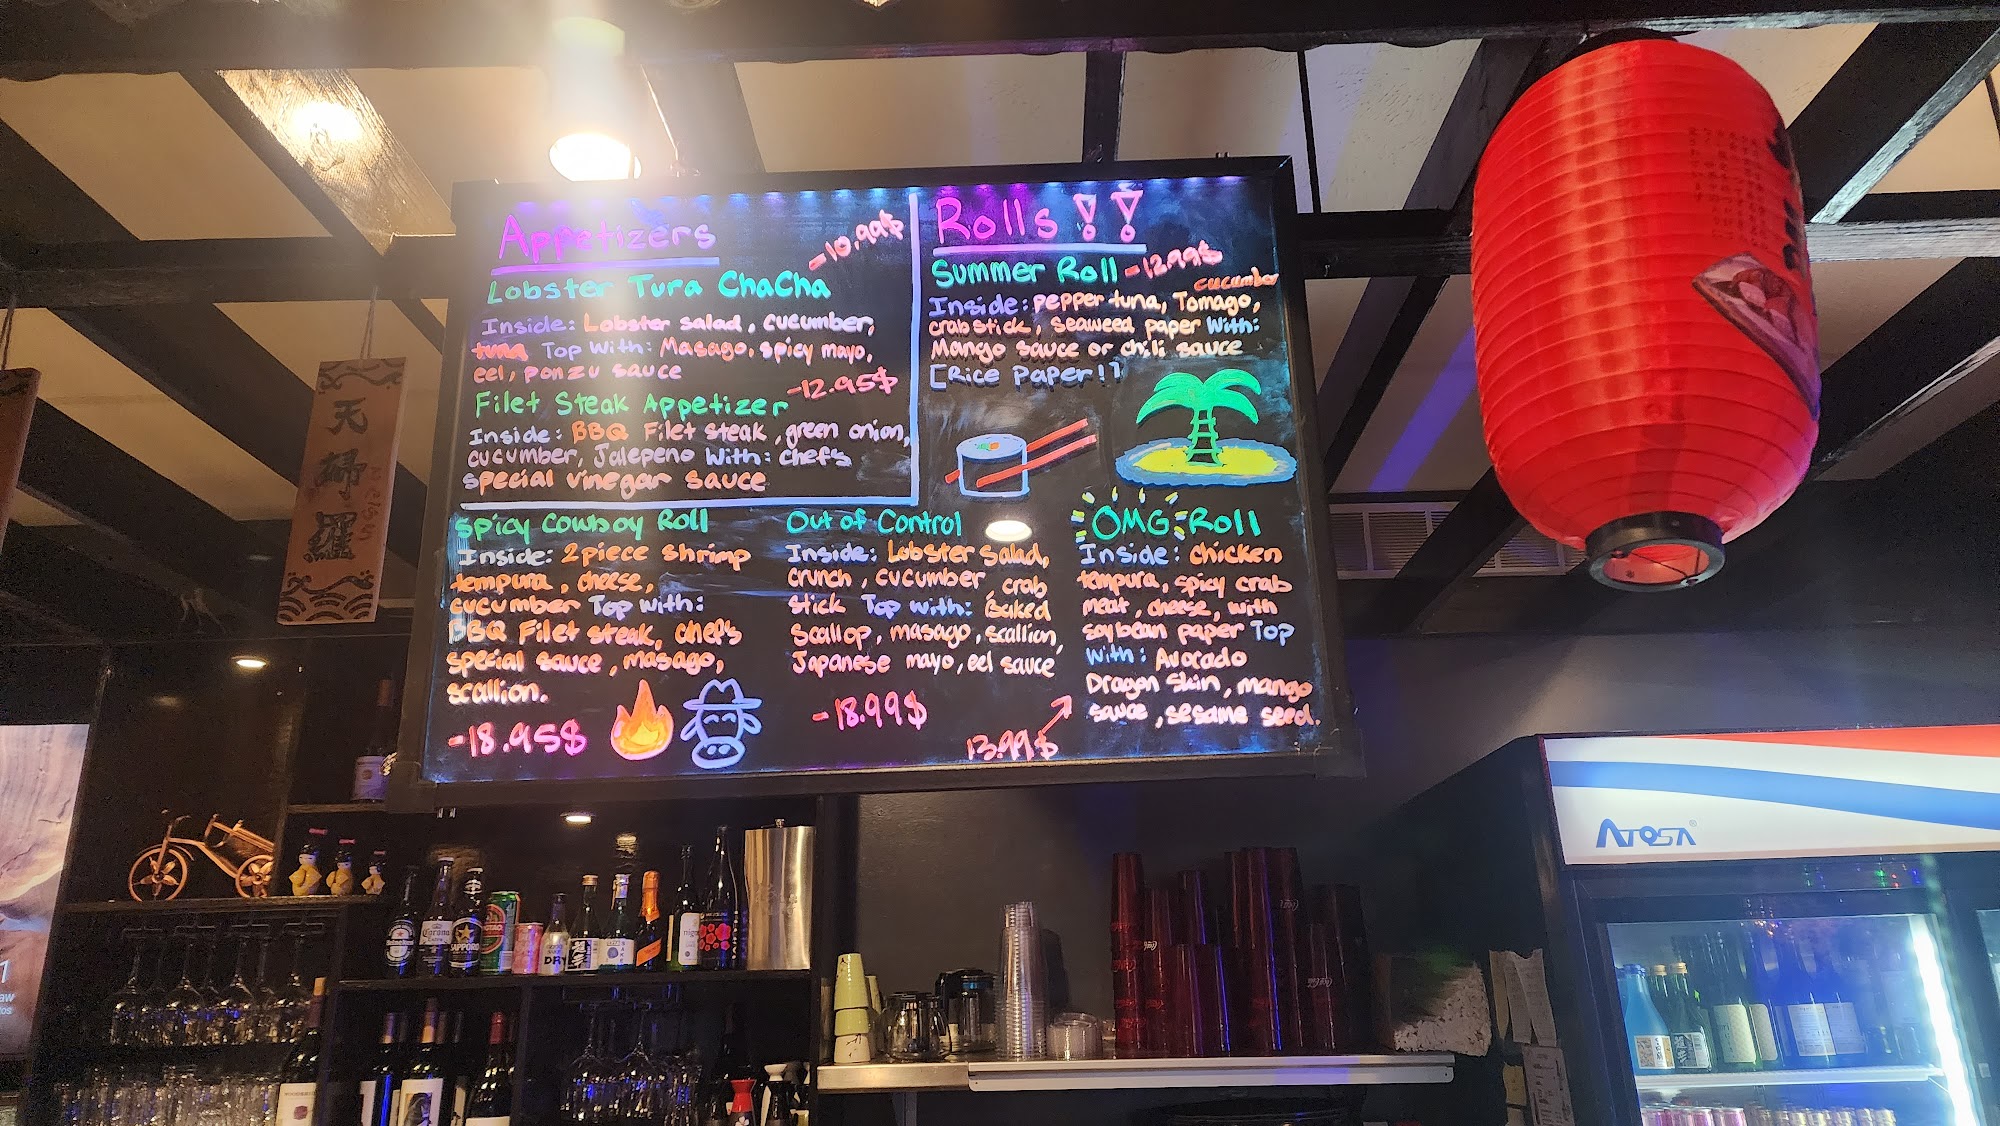 Appetizers
-10.99$
Lobster Tura ChaCha
Inside: Lobster salad, cucumber,
tuna Top With: Masago, spicy mayo,
eel, ponzu sauce
-12.95$
Filet Steak Appetizer
Inside: BBQ Filet steak, green onion,
cucumber, Jalepeno With: chefs
special vinegar sauce
Rolls!!
Summer Roll -12.99$
cucumber
Inside: pepper tuna, Tomago,
crab stick, seaweed paper With:
Mango sauce or chili sauce
[Rice Paper!]
Spicy Cowboy Roll
Inside: 2 piece shrimp
tempura, cheese,
cucumber Top with:
BBQ Filet steak, chefs
special sauce, masago,
scallion.
-18.95$
Out of Control
Inside: Lobster Salad,
crunch, cucumber, crab
stick Top with: Baked
scallop, masago, scallion,
Japanese mayo, eel sauce
-18.99$
OMG Roll
Inside: chicken
tempura, spicy crab
meat, cheese, with
soybean paper Top
with: Avocado
Dragon Skin, mango
sauce, sesame seed.
13.99$
天
婦
羅
ATOSA
Heineken
Corona
SAPPORO
DRY